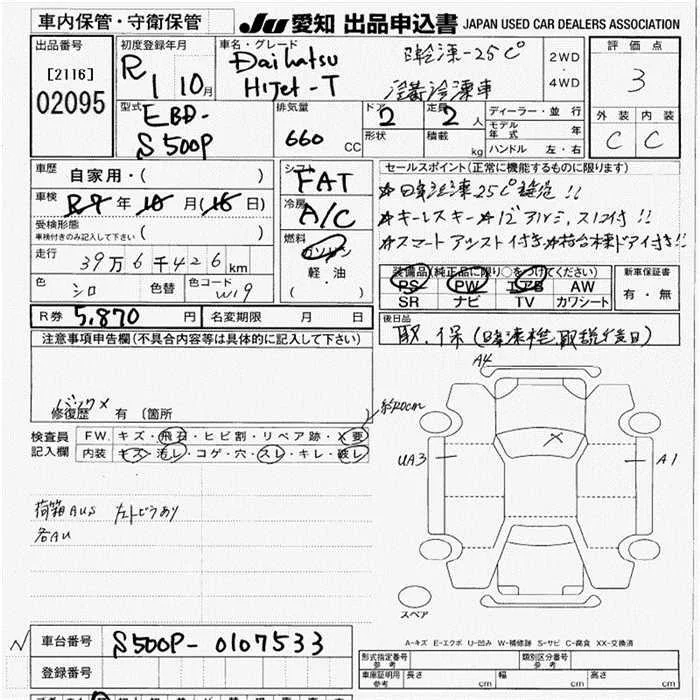 車内保管・守衛保管
JU 愛知 出品申込書 JAPAN USED CAR DEALERS ASSOCIATION
出品番号
[2116]
02095
初度登録年月
R1 10月
車名・グレード
Daihatsu
Hijet-T
-25℃
冷蓄冷凍車
2WD
・
4WD
評価点
3
外装 内装
C C
型式
EBD-
S500P
排気量
660 CC
ドア 2
形状
定員 2 人
積載 kg
ディーラー・並行
モデル年式 年
ハンドル 左・右
車歴
自家用・( )
車検
R7年10月(16日)
受検形態
車検付きのみ記入して下さい ( )
走行
39万6千426km
色 シロ 色替 色コード W19
シフト
FAT
冷房
A/C
燃料
ガソリン
軽油
( ・ )
セールスポイント(正常に機能するものに限ります)
25℃設定!!
☆キーレスキー☆12アルミ,スレ付!!
☆スマートアシスト付き☆
装備品(純正品に限り○をつけてください)
PS PW エアB AW
SR ナビ TV カワシート
新車保証書
有・無
R券 5,870 円 名変期限 月 日
後日品
取.保(
注意事項申告欄(不具合内容等は具体的に記入して下さい)
バックメ
修復歴 有 (箇所
検査員
記入欄
FW. キズ・飛石・ヒビ割・リペア跡・X要
約20cm
内装 キズ・汚レ・コゲ・穴・スレ・キレ・破レ
荷箱AUS
各AU
A4
UA3
A1
X
スペア
A-キズ E-エクボ U-凹み W-補修跡 S-サビ C-腐食 XX-交換済
車台番号 S500P-0107533
登録番号
型式指定番号
参考
類別区分番号
参考
車庫証明用
参考
長さ cm 幅 cm 高さ cm